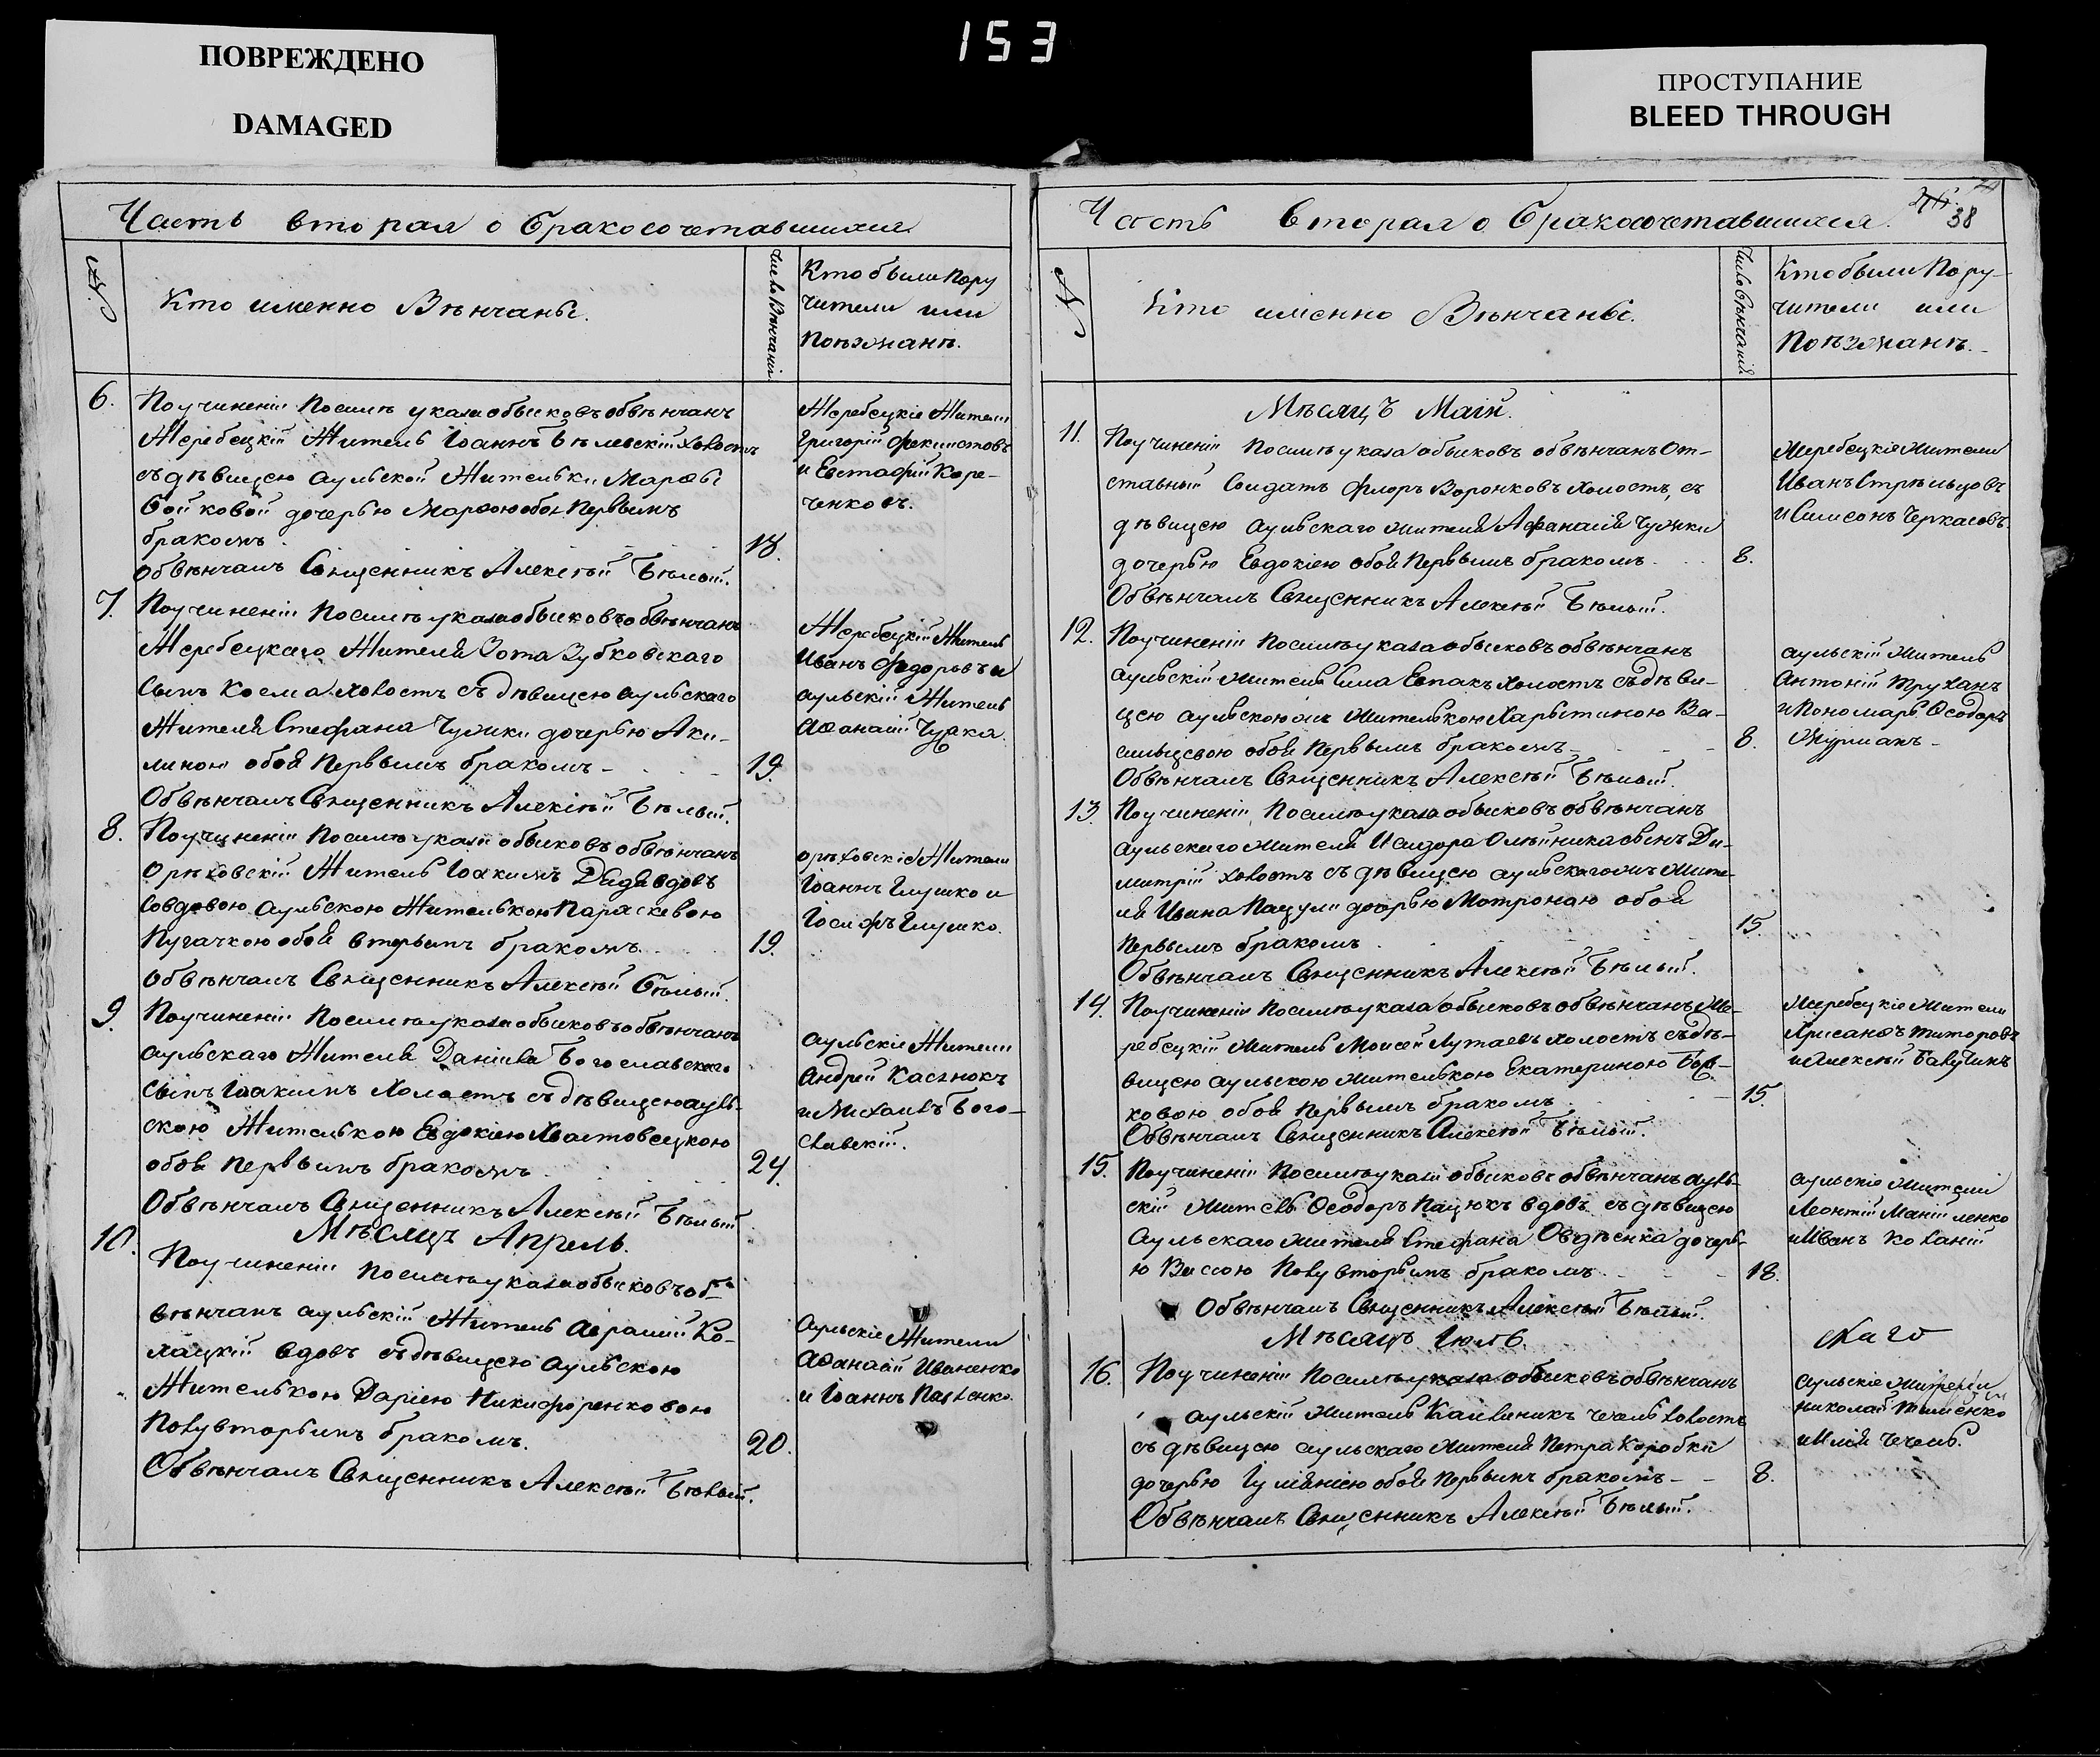 ПОВРЕЖДЕНО
DAMAGED
153
ПРОСТУПАНИЕ
BLEED THROUGH
Часть вторая о бракосочетавшихся
№
Кто именно Вѣнчаны.
Число Вѣнчанія
Кто были пору
чители или
Поѣзжанѣ.
6.
По учиненіи посилѣ указа обысковъ обвѣнчанъ
Жеребецкій Житель Іоаннъ Бѣлевскій холостъ
съ дѣвицею аульской Жительки Марѳы
Бойковой дочерью Марѳою обои первымъ
бракомъ
18.
Обвѣнчалъ Священникъ Алексѣй Бѣлый.
Жеребецкіе Жители
Григорій Феклистовъ
и Евстафій Коре-
ченковъ.
7.
По учиненіи посилѣ указа обысковъ обвѣнчанъ
Жеребецкаго Жителя Зота Зубковскаго
сынъ Косма холостъ съ дѣвицею аульскаго
Жителя Стефана Чужки дочерью Аки-
линою обои первымъ бракомъ
19.
Обвѣнчалъ Священникъ Алексѣй Бѣлый.
Жеребецкій Житель
Иванъ Федоровъ и
аульскій Житель
Аѳанасій
8.
По учиненіи посилѣ указа обысковъ обвѣнчанъ
Орѣховскій Житель Іоакимъ Дидъ вдовъ
со вдовою аульскою Жителькою Параскевою
Пугачкою обои вторымъ бракомъ.
19.
Обвѣнчалъ Священникъ Алексѣй Бѣлый.
орѣховскіе Жители
Іоаннъ Глушко и
Іосифъ Глушко.
9.
По учиненіи посилѣ указа обысковъ обвѣнчанъ
аульскаго Жителя Даніила Богославскаго
сынъ Іоакимъ холостъ съ дѣвицею ауль-
скою Жителькою Евдокіею Хвастовецкою
обои первымъ бракомъ
24.
Обвѣнчалъ Священникъ Алексѣй Бѣлый
аульскіе Жители
Андрей Касянюкъ
и Михаилъ Бого-
славскій.
Мѣсяцъ Апрель.
10.
По учиненіи посилѣ указа обысковъ об-
вѣнчанъ аульскій Житель Ко-
лацкій вдовъ съ дѣвицею аульскою
Жителькою Даріею Никифоренковою
полувторымъ бракомъ.
20.
Обвѣнчалъ Священникъ Алексѣй Бѣлый.
Аульскіе Жители
Аѳанасій Иваненко
и Іоаннъ Павленко.
Часть вторая о бракосочетавшихся.
38
№
Кто именно Вѣнчаны.
Число Вѣнчанія
Кто были пору-
чители или
Поѣзжанѣ.
Мѣсяцъ Маій.
11.
По учиненіи посилѣ указа обысковъ обвѣнчанъ от-
ставный Солдатъ Флоръ Воронковъ холостъ, съ
дѣвицею аульскаго жителя Афанасія Чужки
дочерью Евдокіею обои первымъ бракомъ.
8.
Обвѣнчалъ Священникъ Алексѣй Бѣлый.
Жеребецкіе жители
Иванъ Стрѣльцовъ
и Симеонъ Черкасовъ.
12.
По учиненіи посилѣ указа обысковъ обвѣнчанъ
аульскій житель Сила Евпакъ холостъ съ дѣви-
цею аульскою жъ жителькою Харытиною Ва-
сильцевою обои первымъ бракомъ
8.
Обвѣнчалъ Священникъ Алексѣй Бѣлый.
аульскій житель
Антоній Труханъ
и пономарь Ѳеодоръ
Журманъ
13.
По учиненіи посилѣ указа обысковъ обвѣнчанъ
аульскаго жителя Исидора Олѣйника сынъ Ди-
митрій холостъ съ дѣвицею аульскаго жъ жите-
ля Ивана Пацули дочерью Мотроною обои
первымъ бракомъ
15.
Обвѣнчалъ Священникъ Алексѣй Бѣлый.
14.
По учиненіи посилѣ указа обысковъ обвѣнчанъ Же-
ребецкій житель Моисей Лутаевъ холостъ съ дѣ-
вицею аульскою жителькою Екатериною
ковою обои первымъ бракомъ
15.
Обвѣнчалъ Священникъ Алексѣй Бѣлый.
Жеребецкіе жители
Хрисанѳъ Титоровъ
и Алексѣй
15.
По учиненіи посилѣ указа обысковъ обвѣнчанъ ауль-
скій житель Ѳеодоръ Пацюкъ вдовъ съ дѣвицею
аульскаго жителя Стефана Овдѣенка дочерь-
ю Вассою полувторымъ бракомъ.
18.
Обвѣнчалъ Священникъ Алексѣй Бѣлый.
аульскіе жители
Леонтій Манійленко
и Иванъ Коханій
Мѣсяцъ Іюль.
16.
По учиненіи посилѣ указа обысковъ обвѣнчанъ
аульскій житель Каленикъ Чечель холостъ
съ дѣвицею аульскаго жителя Петра Коробки
дочерью Іуліаніею обои первымъ бракомъ
8.
Обвѣнчалъ Священникъ Алексѣй Бѣлый.
аульскіе жители
Николай Тименко
и Илія Чечель.